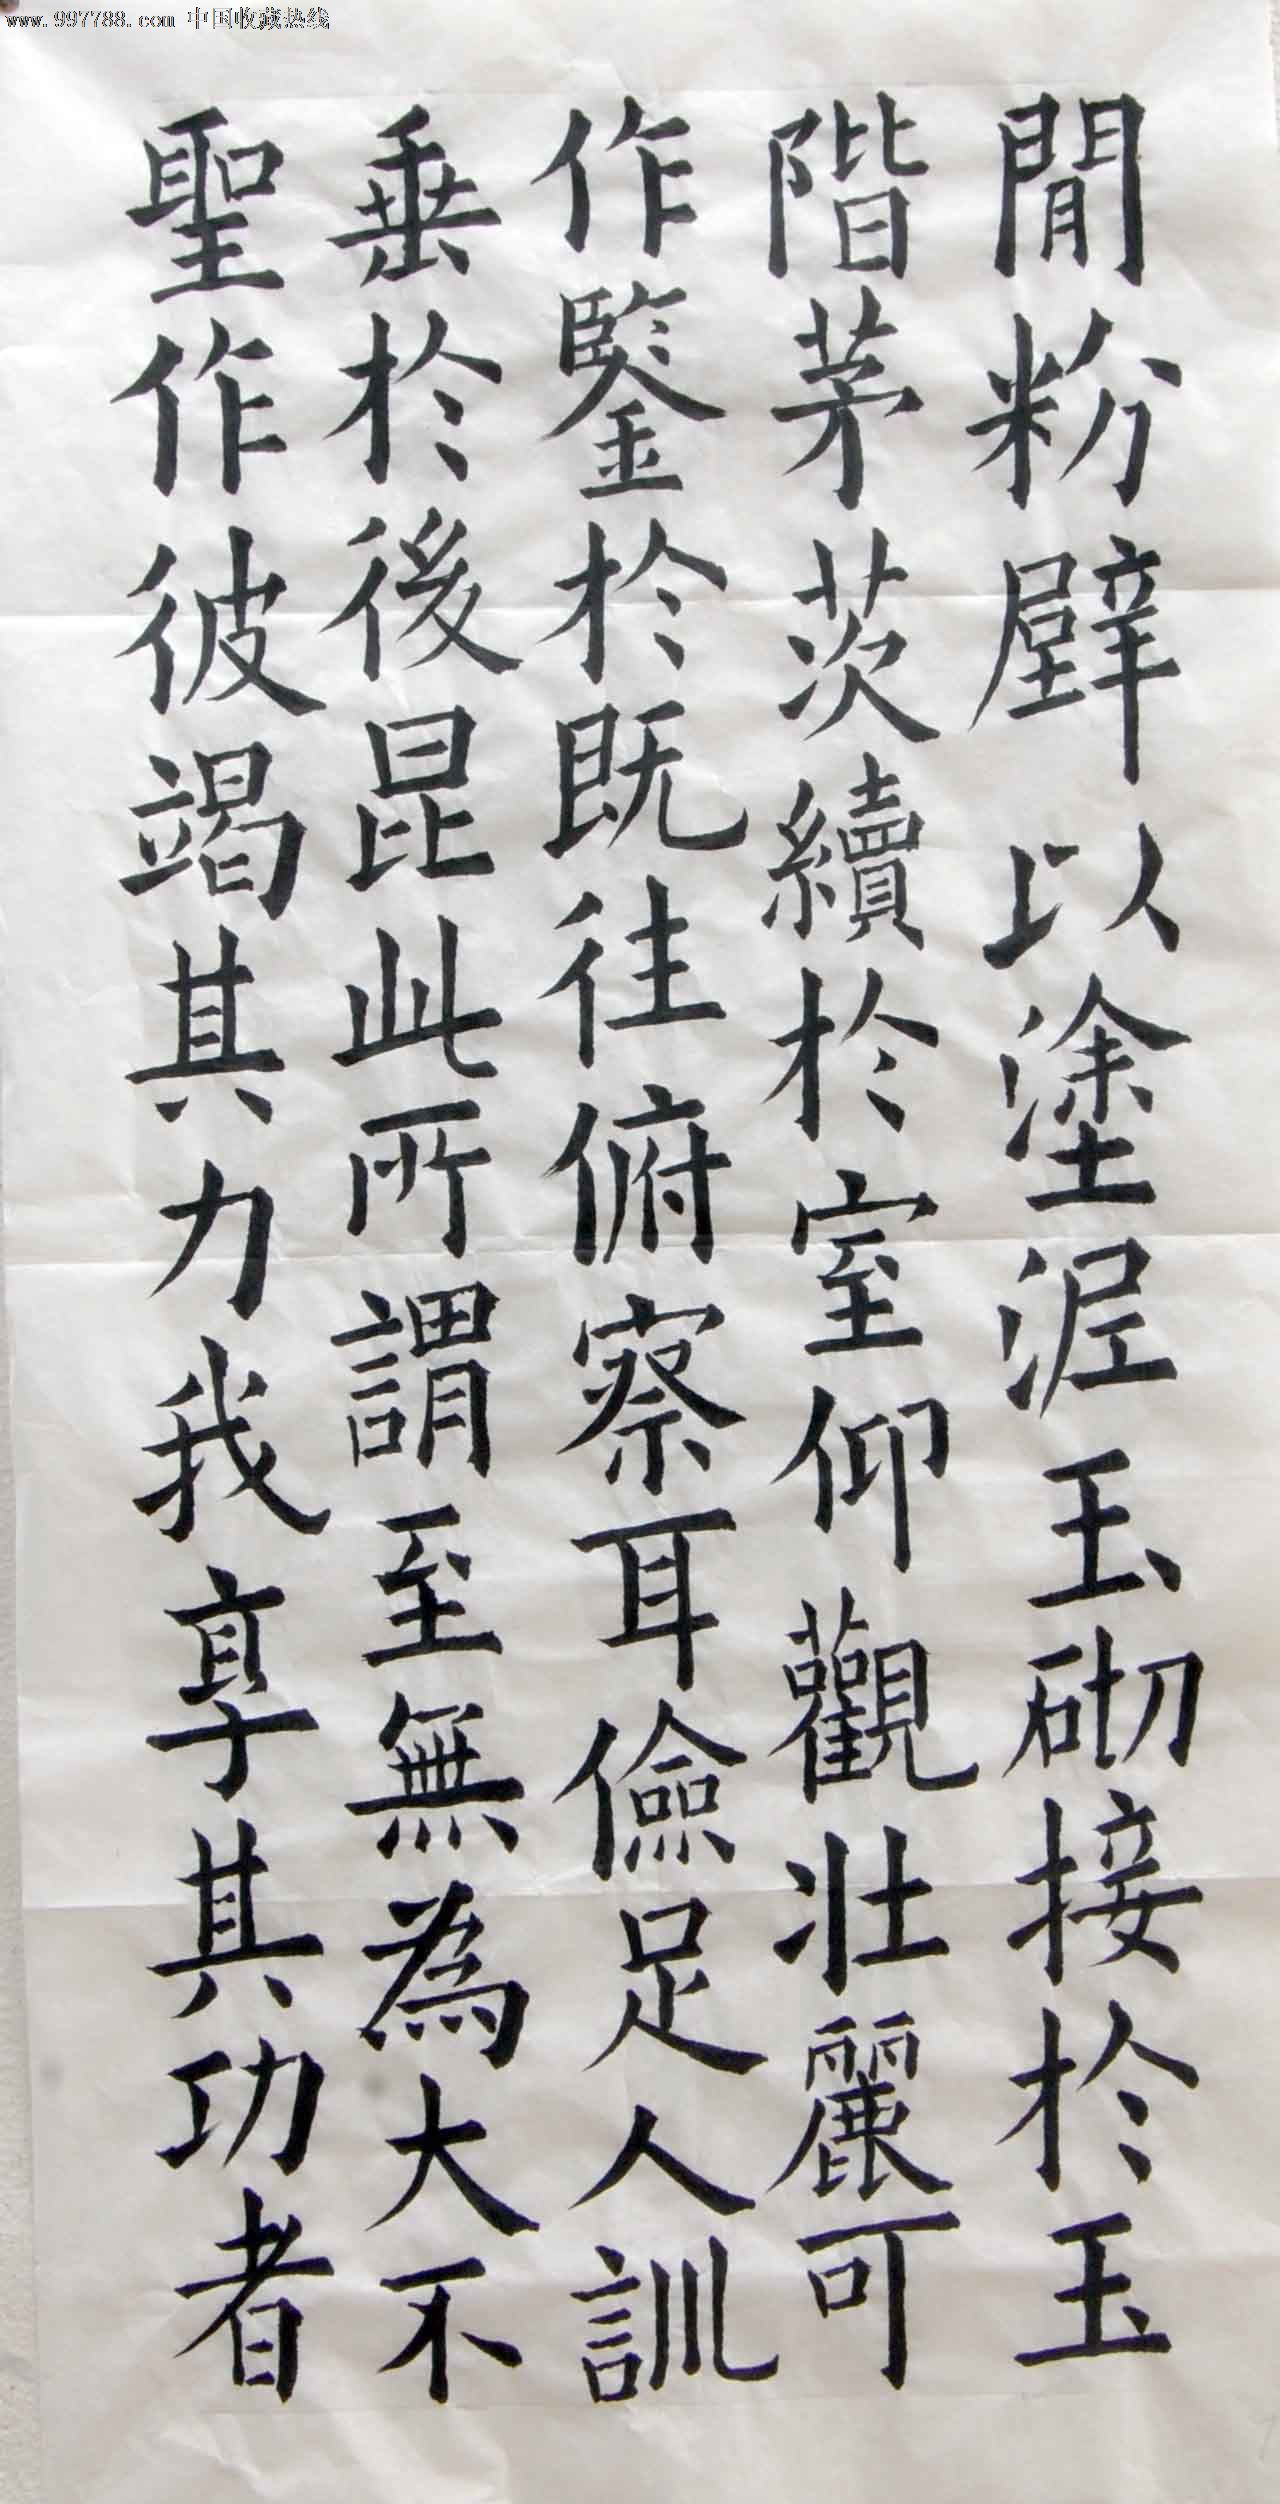 www.997788.com 中国收藏热线
閒粉壁以塗泥玉砌接於玉
階茅茨續於瓊室仰觀壯麗可
作鑒於既往俯察耳儉足人訓
垂於後昆此所謂至無為大不
聖作彼竭其力我享其功者